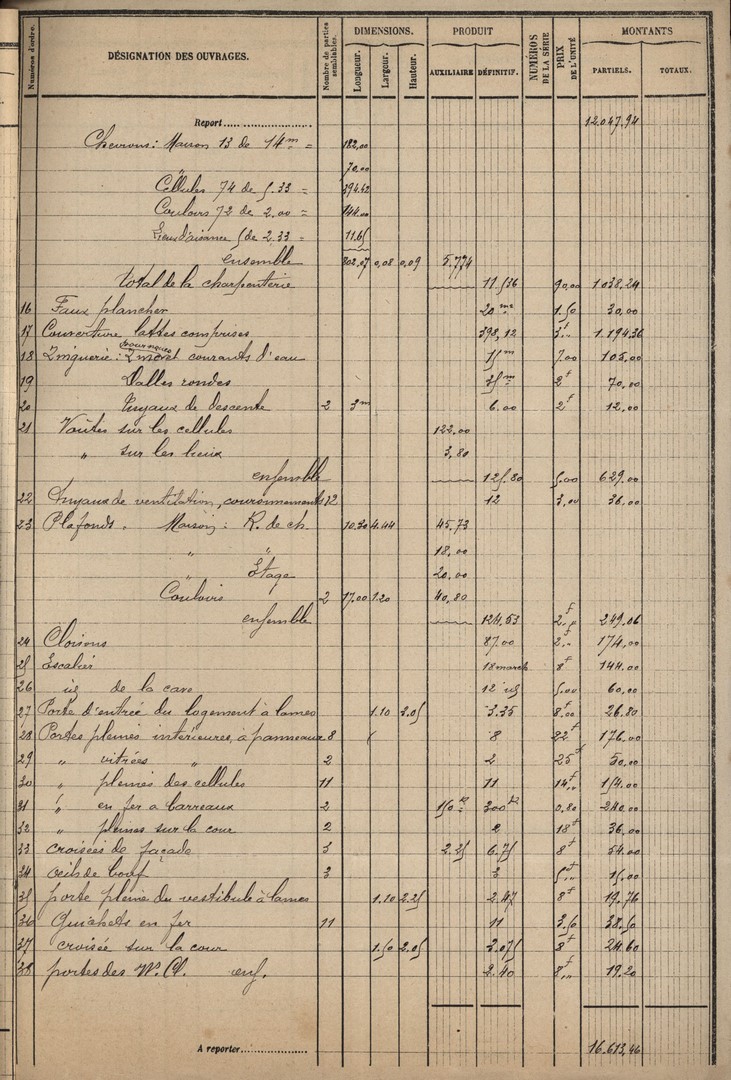 Numéros d'ordre. DÉSIGNATION DES OUVRAGES. Nombre de parties semblables. DIMENSIONS. Longueur. Largeur. Hauteur. PRODUIT AUXILIAIRE DÉFINITIF. NUMÉROS DE LA SÉRIE PRIX DE L'UNITÉ MONTANTS PARTIELS. TOTAUX.
Report 12.047,94
Chevrons: Maison 13 de 14m = 182,00
" 70,00
Cellules 74 de 5.33 = 394.42
Couloirs 72 de 2.00 = 144.00
Lieux d'aisance 5 de 2.33 = 11.65
ensemble 802,07 0,08 0,09 5.774
Total de la charpenterie 11.536 90,00 1.038,24
16 Faux plancher 20 m 1.50 30,00
17 Couverture lattes comprises 398,12 3f" 1.194.36
18 Zinguerie: courants d'eau 15m 7.00 105,00
19 Dalles rondes 35m 2f 70,00
20 Tuyaux de descente 2 3m 6.00 2f 12,00
21 Voûtes sur les cellules 122,00
" sur les lieux 3,80
ensemble 125.80 5,00 629,00
22 Tuyaux de ventilation, couronnements 12 12 3,00 36,00
23 Plafonds. Maison: R. de ch. 10.30 4.44 45.73
" " 18,00
" Etage 20,00
Couloirs 2 17.00 1.20 40,80
ensemble 124.53 2f" 249.06
24 Cloisons 87.00 2." 174,00
25 Escalier 18 march 8f 144.00
26 id de la cave 12 id 5,00 60,00
27 Porte d'entrée du logement à lames 1.10 3.05 3.35 8f,00 26,80
28 Portes pleines intérieures, à panneaux 8 8 22f 176,00
29 " vitrées " 2 2 25f 50,00
30 " pleines des cellules 11 11 14f" 154,00
31 " en fer a barreaux 2 150 k 300 k 0,80 240,00
32 " pleines sur la cour 2 2 18f 36,00
33 croisées de façade 3 2.25 6.75 8f 54.00
34 oeils de boeuf 3 3 5f" 15,00
35 porte pleine du vestibule à lames 1.10 2.25 2.47 8f 19,76
36 Guichets en fer 11 11 3.50 38.50
37 croisée sur la cour 1.50 2.05 3.075 8f 24.60
38 portes des W. Cl. enf. 2.40 8f" 19.20
A reporter 16.613,46